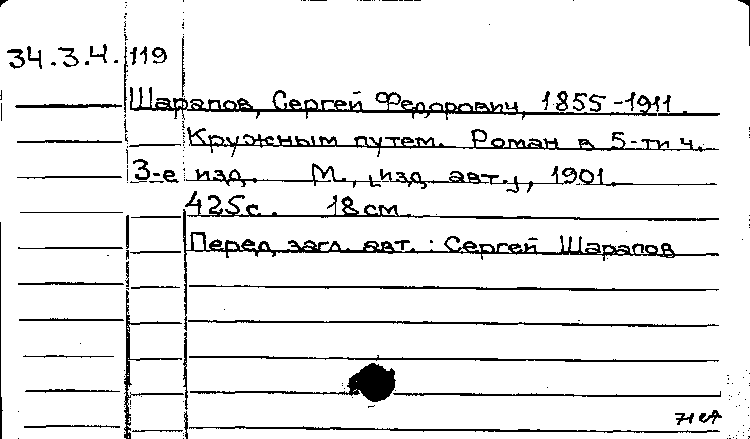 34.3.4.119
Шарапов, Сергей Федорович, 1855-1911.
Кружным путем. Роман в 5-ти ч.
3-е изд. М., [изд. авт.], 1901.
425с. 18см.
Перед загл. авт.: Сергей Шарапов